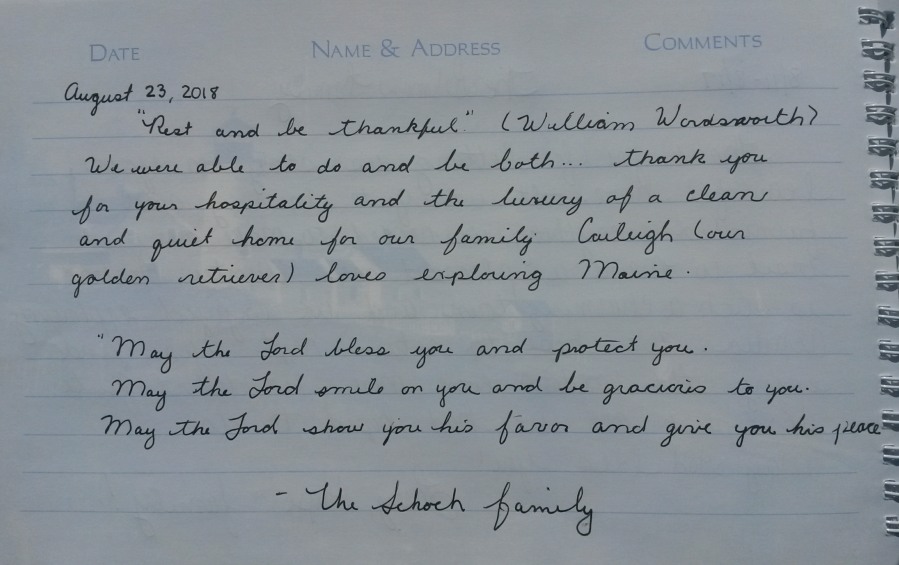 DATE NAME & ADDRESS COMMENTS
August 23, 2018
"Rest and be thankful." (William Wordsworth)
We were able to do and be both... thank you
for your hospitality and the luxury of a clean
and quiet home for our family. Caileigh (our
golden retriever) loves exploring Maine.
"May the Lord bless you and protect you.
May the Lord smile on you and be gracious to you.
May the Lord show you his favor and give you his peace
- The Schoch family